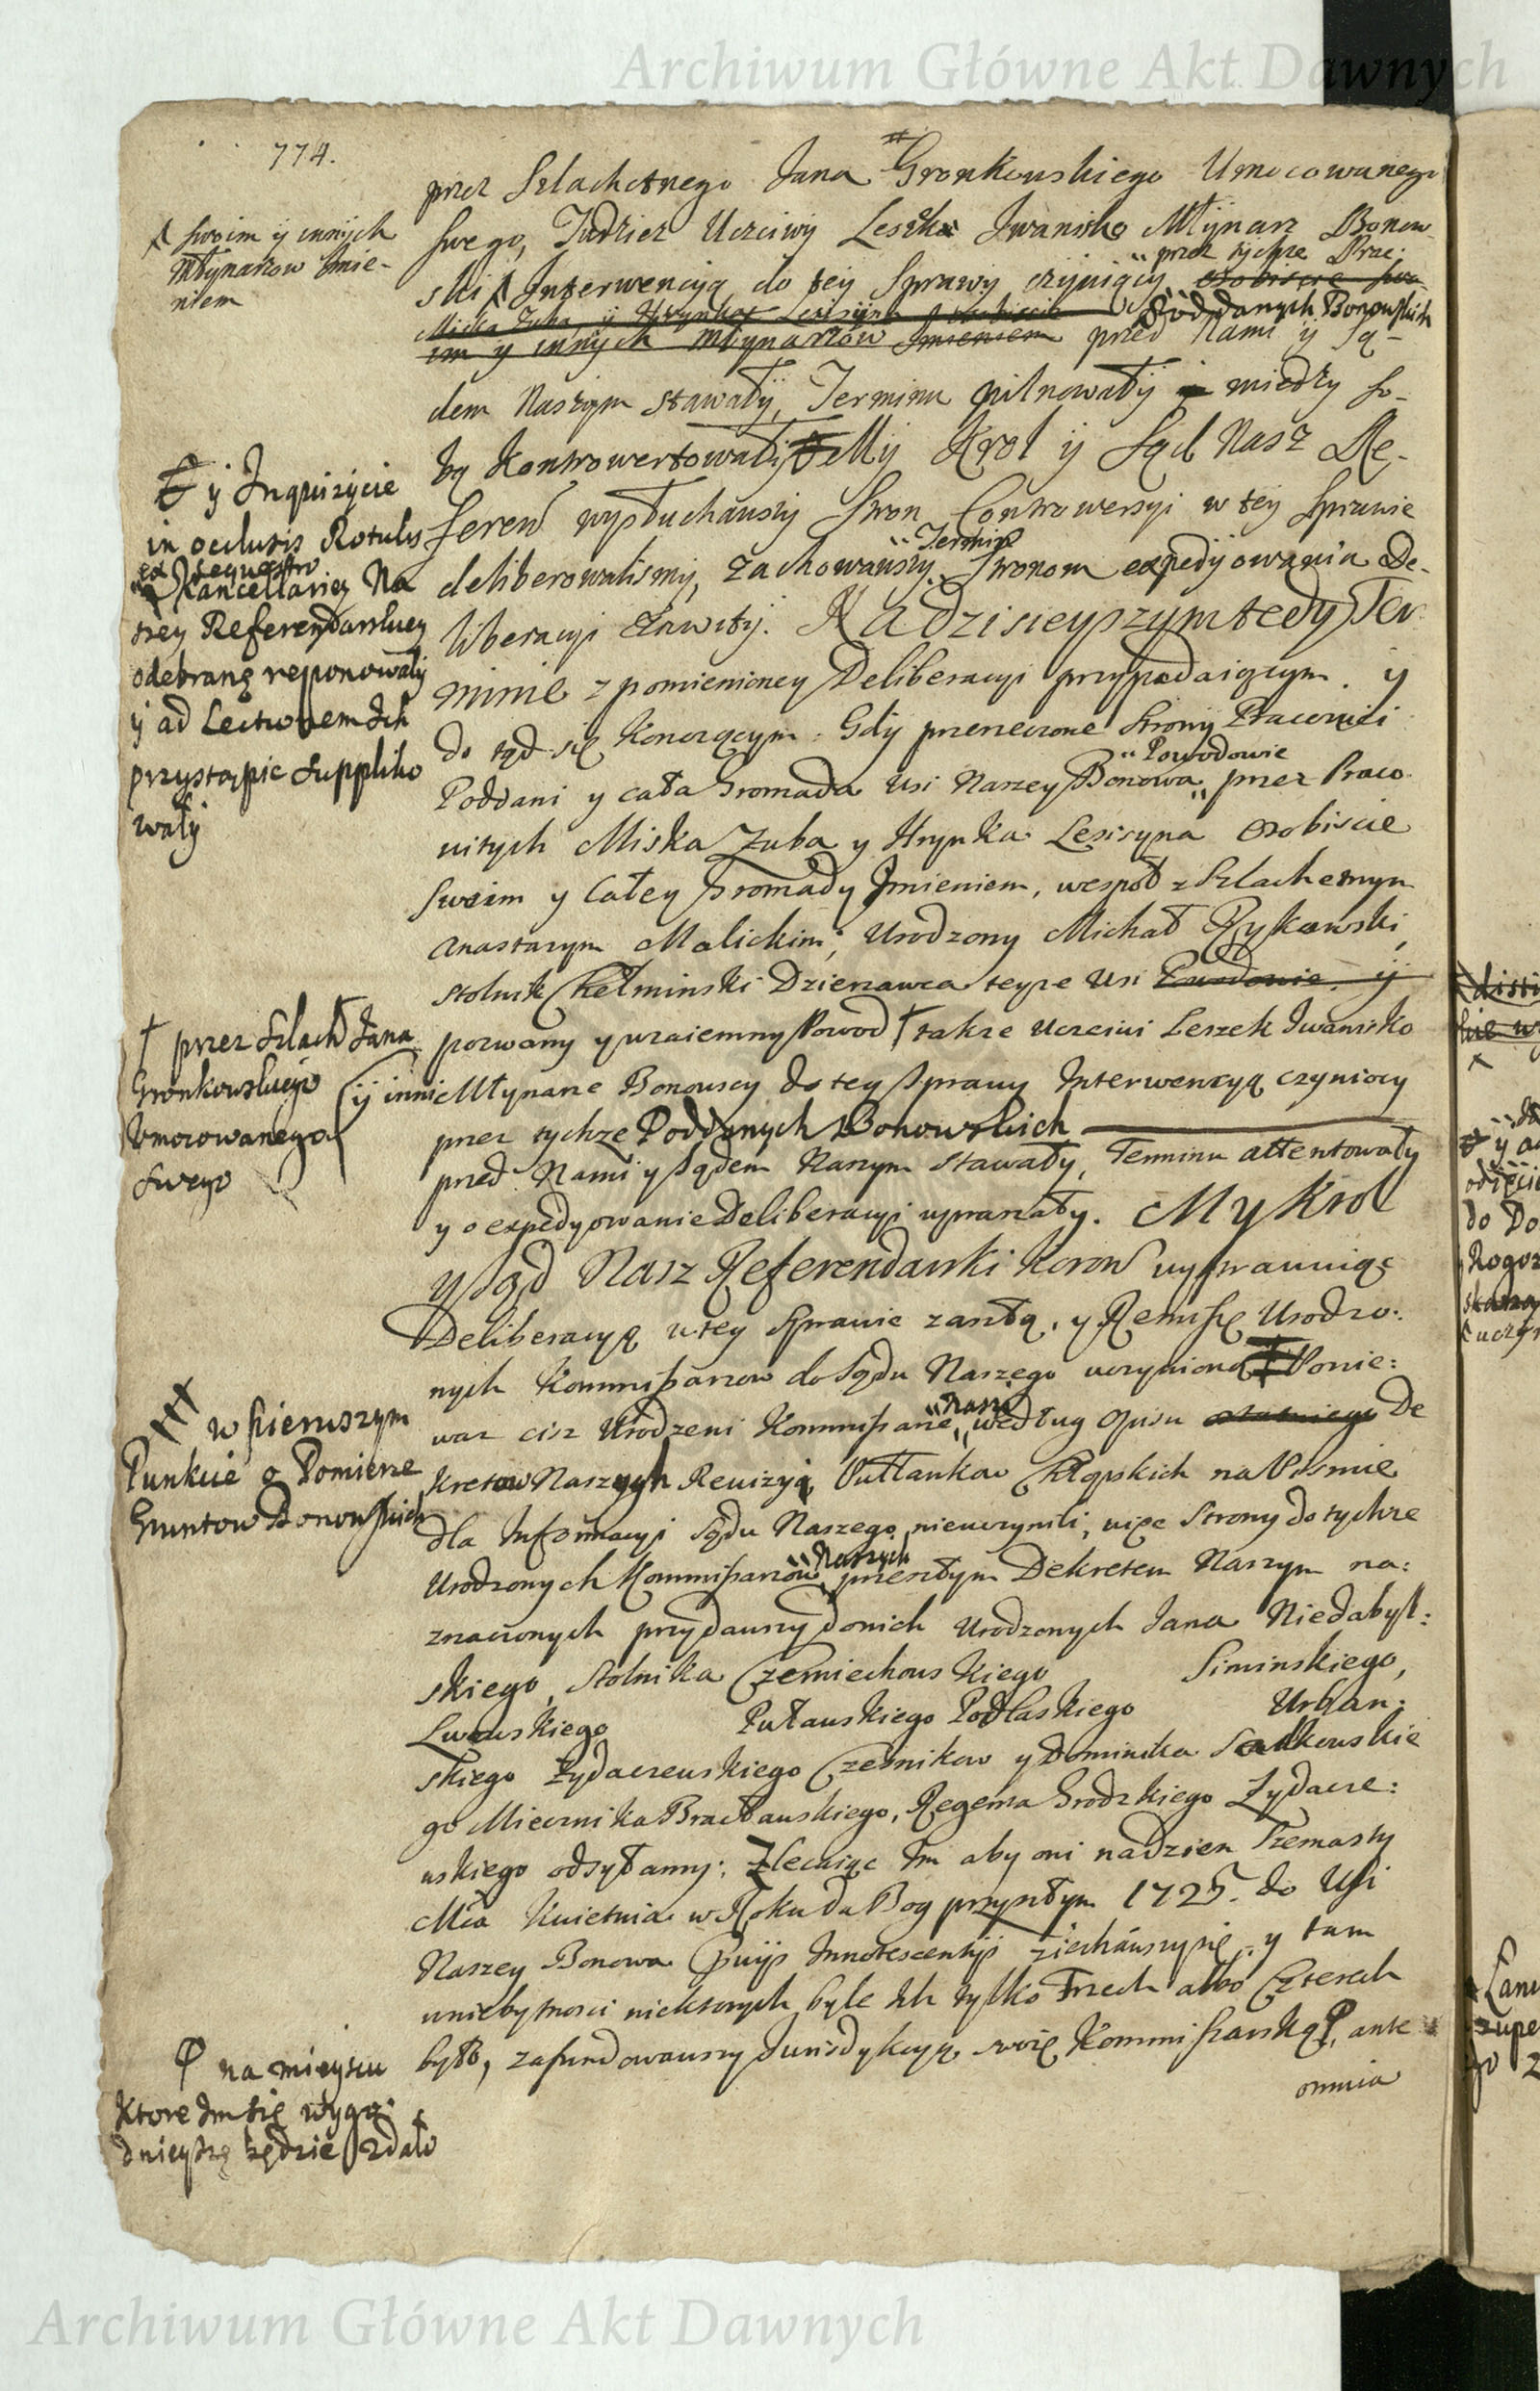 Archiwum Główne Akt Dawnych
774.
przez Szlachetnego Jana Gronkowskiego Umocowanego
swego, Tudziesz Uczciwy Leszko Iwaniszko Młynarz Bonow-
ski Interwencyą do tey Sprawy czyniący przez tychże Prac:
Miska Zuba y Hrynka Lesisyna osobiscie Poddanych Bonowskich
im y innych Młynarzow Imieniem przed Nami y Są-
dem Naszym stawały, Terminu pilnowały y między so-
bą kontrowertowały My Krol y Sąd Nasz Re-
feren wysłuchawszy Stron Controwersyi w tey Sprawie
deliberowalismy, zachowawszy Termin Stronom expedyowania De-
liberacyi zawity. Na dzisieyszym tedy Ter-
minie z pomienioney Deliberacyi przypadaiącym y
do tąd się konczącym. Gdy przerzeczone Strony Pracowici
Poddani y cała Gromada Wsi Naszey Bonowa Powodowie przez Praco-
witych Miska Zuba y Hrynka Lesisyna osobiscie
swoim y całey Gromady Imieniem, wespoł z Szlachetnym
Anastazym Malickim; Urodzony Michał Rykowski,
Stolnik Chełminski Dzierzawca teyże Wsi Powodowie y
pozwany y wzaiemny Powod także Uczciwi Leszek Iwaniszko
y inni Młynarze Bonowscy do tey sprawy Interwencyą czyniący
przez tychże Poddanych Bonowskich
przed Nami y sądem Naszym stawały, Terminu attentowały
y o expedyowanie Deliberacyi upraszały. My Krol
y Sąd Nasz Referendarski Koron uprawuiąc
Deliberacyą w tey Sprawie zaszłą, y Remissę Urodzo-
nych Kommissarzow do Sądu Naszego uczynioną Ponie:
waz ciz Urodzeni Kommissarze Nasi według opisu ostatniego De
kretow Naszych Rewizyą Pułłankow Chłopskich na Pismie
dla Informacyi Sądu Naszego nieuczynili, więc Strony do tychze
Urodzonych Kommissarzow Naszych przeszłym Dekretem Naszym na:
znaczonych przydawszy do nich Urodzonych Jana Niedabyl:
skiego, Stolnika Czerniechowskiego Siminskiego,
Lwowskiego Puławskiego Podlaskiego Urban:
skiego Żydaczewskiego Czesnikow y Dominika Sadkowskie
go Miecznika Bracławskiego, Regenta Grodzkiego Żydacze:
wskiego odsyłamy; Zlecaiąc Im aby oni na dzien Szemasty
Mca Kwietnia w Roku da Bog przyszłym 1725. do Wsi
Naszey Bonowa Innotescentyi ziechawszy się, y tam
w niebytnosci niektorych byle Ich tylko Trzech albo Czterech
było, zafundowawszy Jurisdykcyą swoię Kommissarską ante
omnia
swoim y innych
Młynarzow Imie-
niem
y Inquizycie
in oclusis Rotulis
ex sequestro
Kancellariey Na
szey Referendarskiey
odebrane reponowały
y ad Lecturem Ich
przystąpic suppliko
wały
przez Szlach Jana
Gronkowskiego
Umocowanego
swego
w pierwszym
Punkcie o Pomierze
Gruntow Bonowskich
na mieyscu
ktore Im się wygo:
dnieysze będzie zdało
Archiwum Główne Akt Dawnych